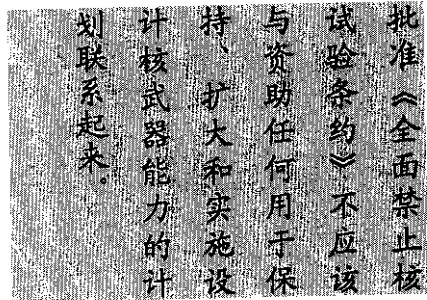 批准《全面禁止核
试验条约》不应该
与资助任何用于保
持、扩大和实施设
计核武器能力的计
划联系起来。